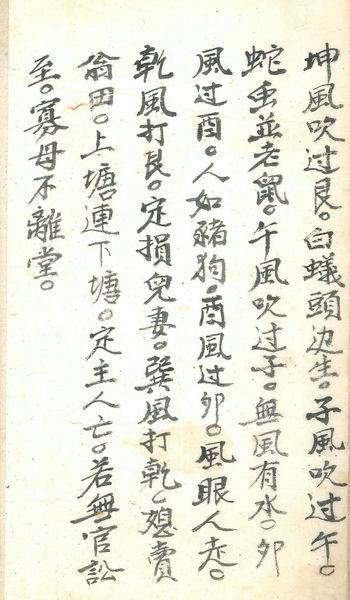 坤風吹过艮。白蟻頭边生。子風吹过午。
蛇虫並老鼠。午風吹过子。無風有水。卯
風过酉。人如豬狗。酉風过卯。風眼人走。
乾風打艮。定損兒妻。巽風打乾、媳賣
翁田。上塘連下塘。定主人亡。若無官訟
至。寡母不離堂。